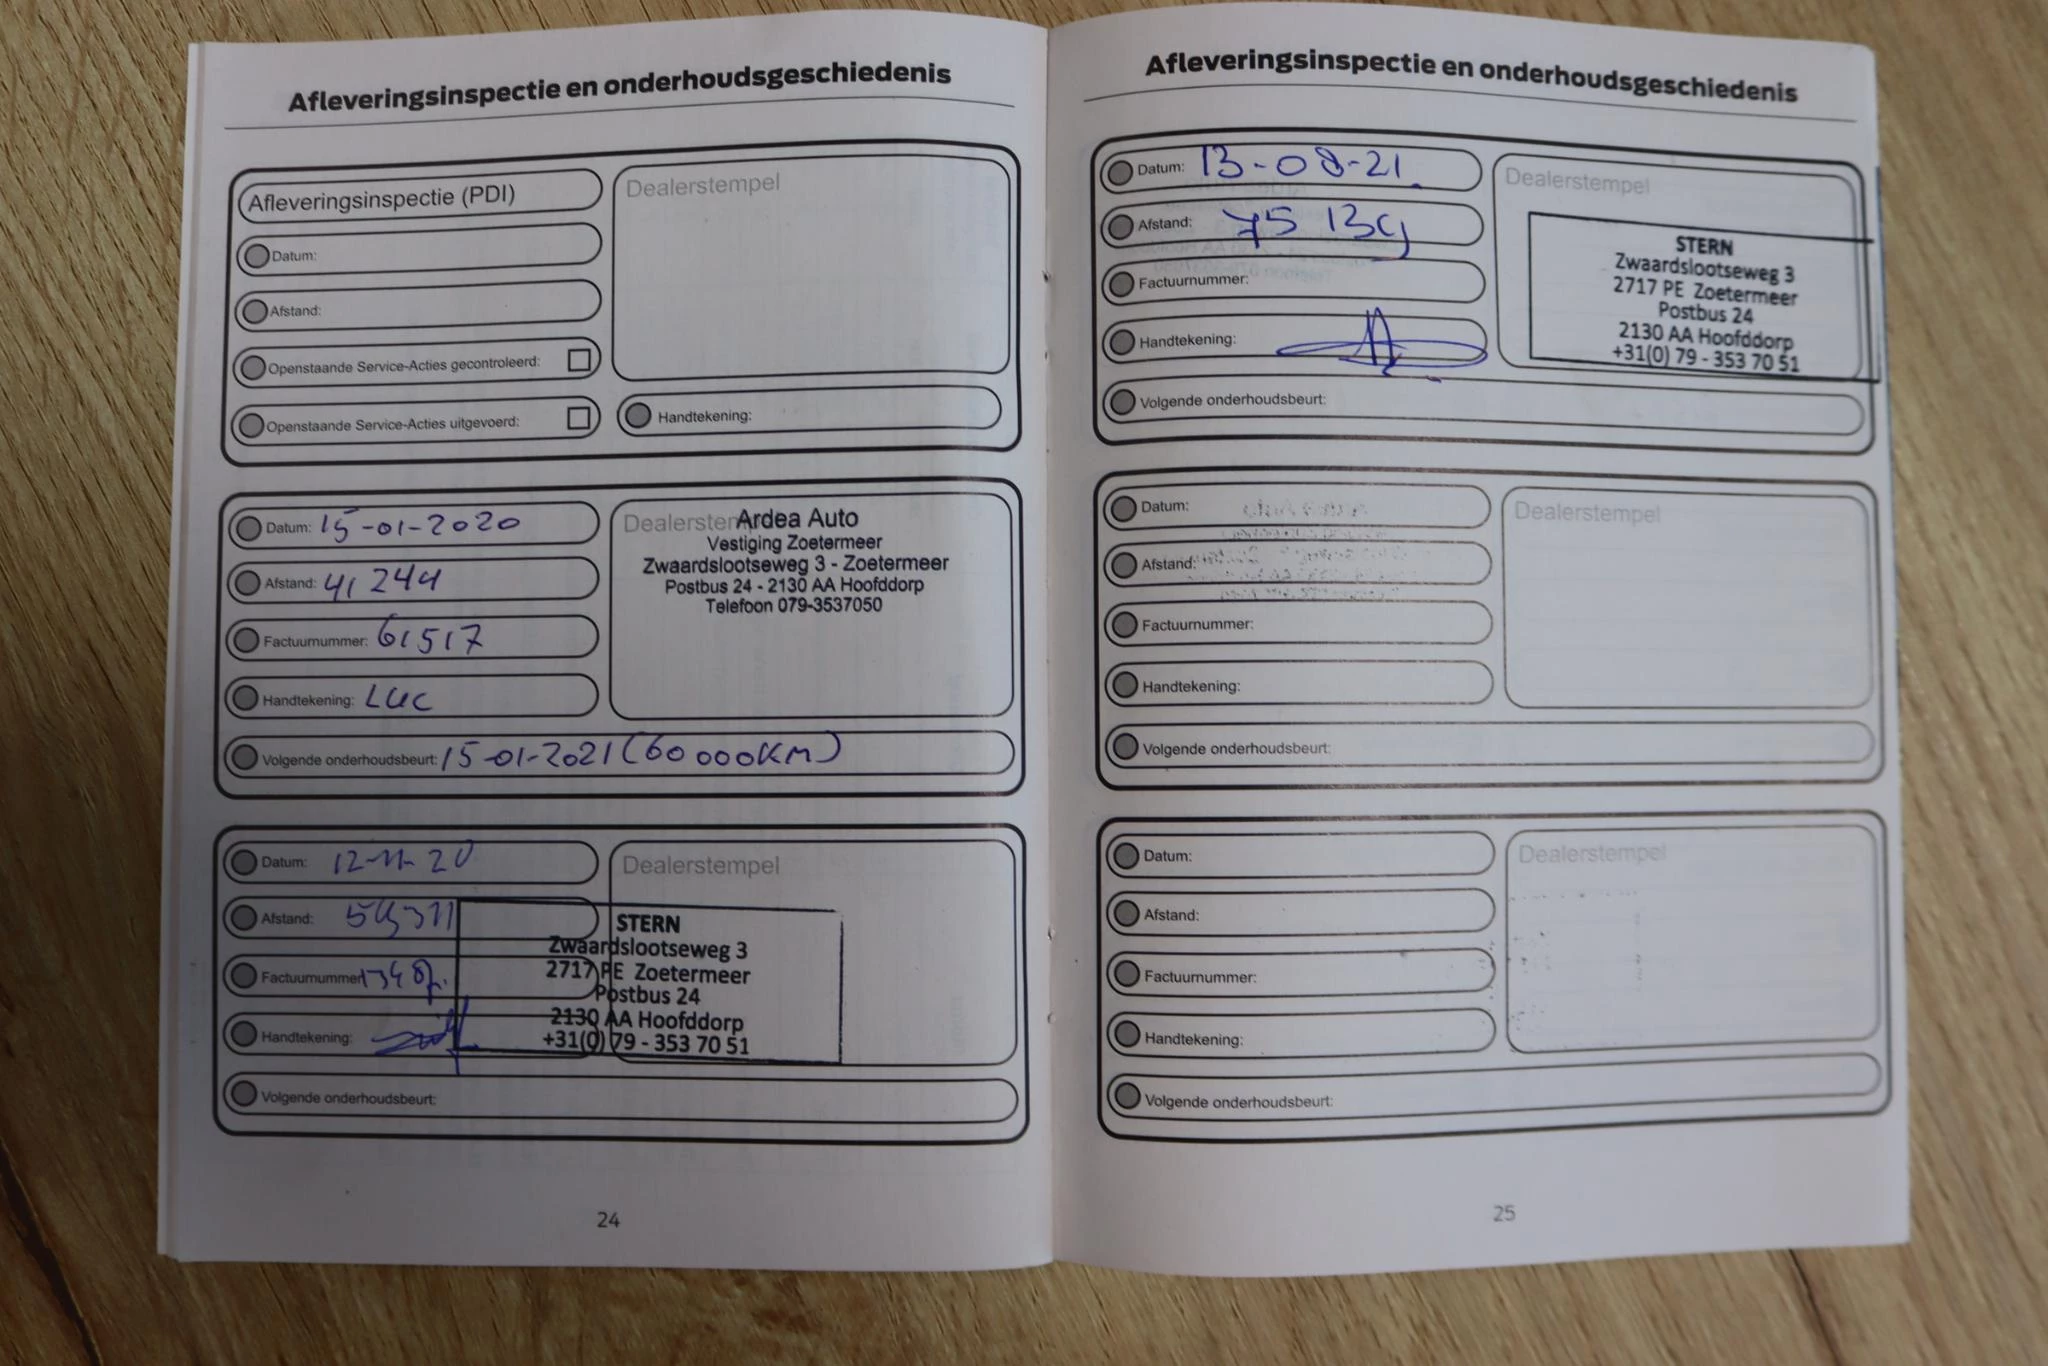 Afleveringsinspectie en onderhoudsgeschiedenis
Afleveringsinspectie (PDI)
Datum:
Afstand:
Openstaande Service-Acties gecontroleerd:
Openstaande Service-Acties uitgevoerd:
Dealerstempel
Handtekening:
Datum: 15-01-2020
Afstand: 41 244
Factuurnummer: 61517
Handtekening: LUC
Dealerstempel
Ardea Auto
Vestiging Zoetermeer
Zwaardslootseweg 3 - Zoetermeer
Postbus 24 - 2130 AA Hoofddorp
Telefoon 079-3537050
Volgende onderhoudsbeurt: 15-01-2021 (60 000KM)
Datum: 12-11-20
Afstand:
Factuurnummer
Handtekening:
Dealerstempel
STERN
Zwaardslootseweg 3
2717 PE Zoetermeer
Postbus 24
2130 AA Hoofddorp
+31(0) 79 - 353 70 51
Volgende onderhoudsbeurt:
24
Afleveringsinspectie en onderhoudsgeschiedenis
Datum: 13-08-21
Afstand: 75
Factuurnummer:
Handtekening:
Dealerstempel
STERN
Zwaardslootseweg 3
2717 PE Zoetermeer
Postbus 24
2130 AA Hoofddorp
+31(0) 79 - 353 70 51
Volgende onderhoudsbeurt:
Datum:
Afstand:
Factuurnummer:
Handtekening:
Dealerstempel
Volgende onderhoudsbeurt:
Datum:
Afstand:
Factuurnummer:
Handtekening:
Dealerstempel
Volgende onderhoudsbeurt:
25